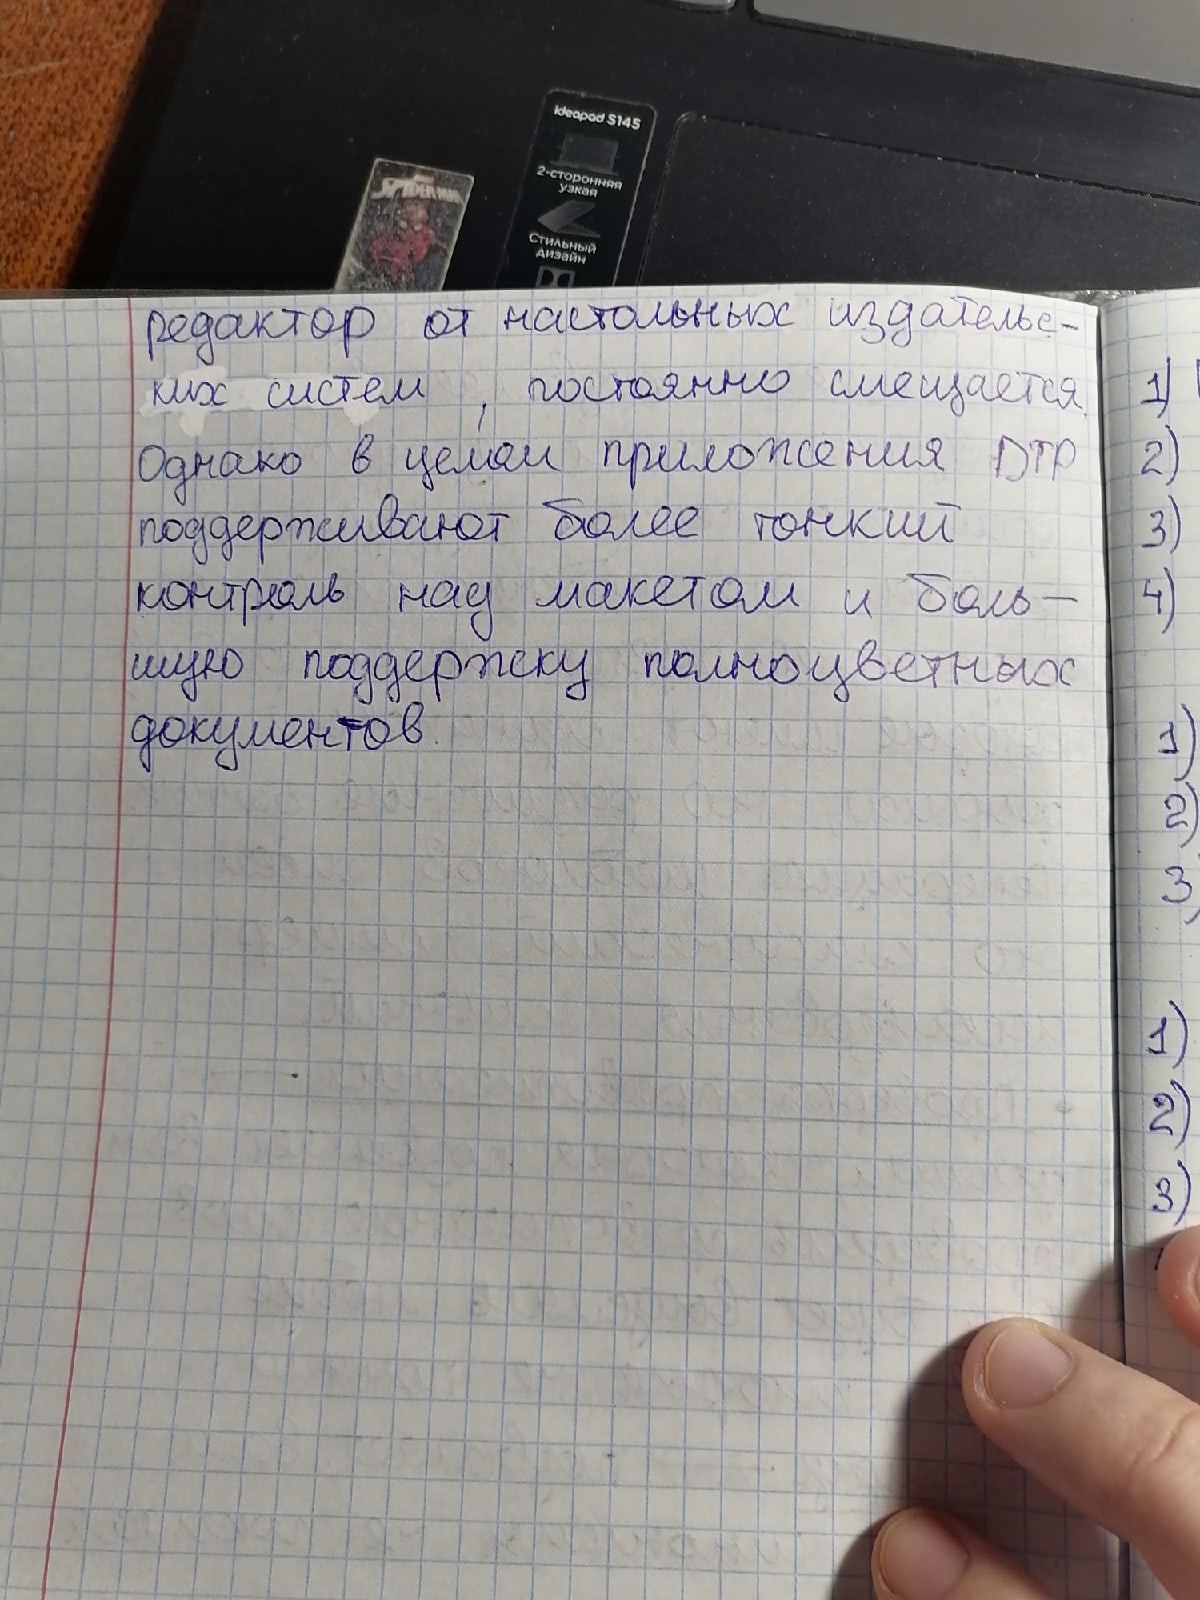 ideapad S145
2-сторонняя
узкая
Стильный
дизайн
SPIDER-MAN
редактор от настольных издательс-
ких систем, постоянно смещается.
Однако в целом приложения DTP
поддерживают более тонкий
контроль над макетом и боль-
шую поддержку полноцветных
документов.
1)
2)
3)
4)
1)
2)
3)
1)
2)
3)